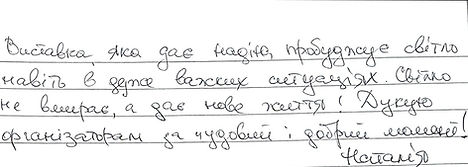 Виставка, яка дає надію, пробуджує світло
навіть в дуже важких ситуаціях. Світло
не вмирає, а дає нове життя! Дякую
організаторам за чудовий і добрий момент!
Наталія